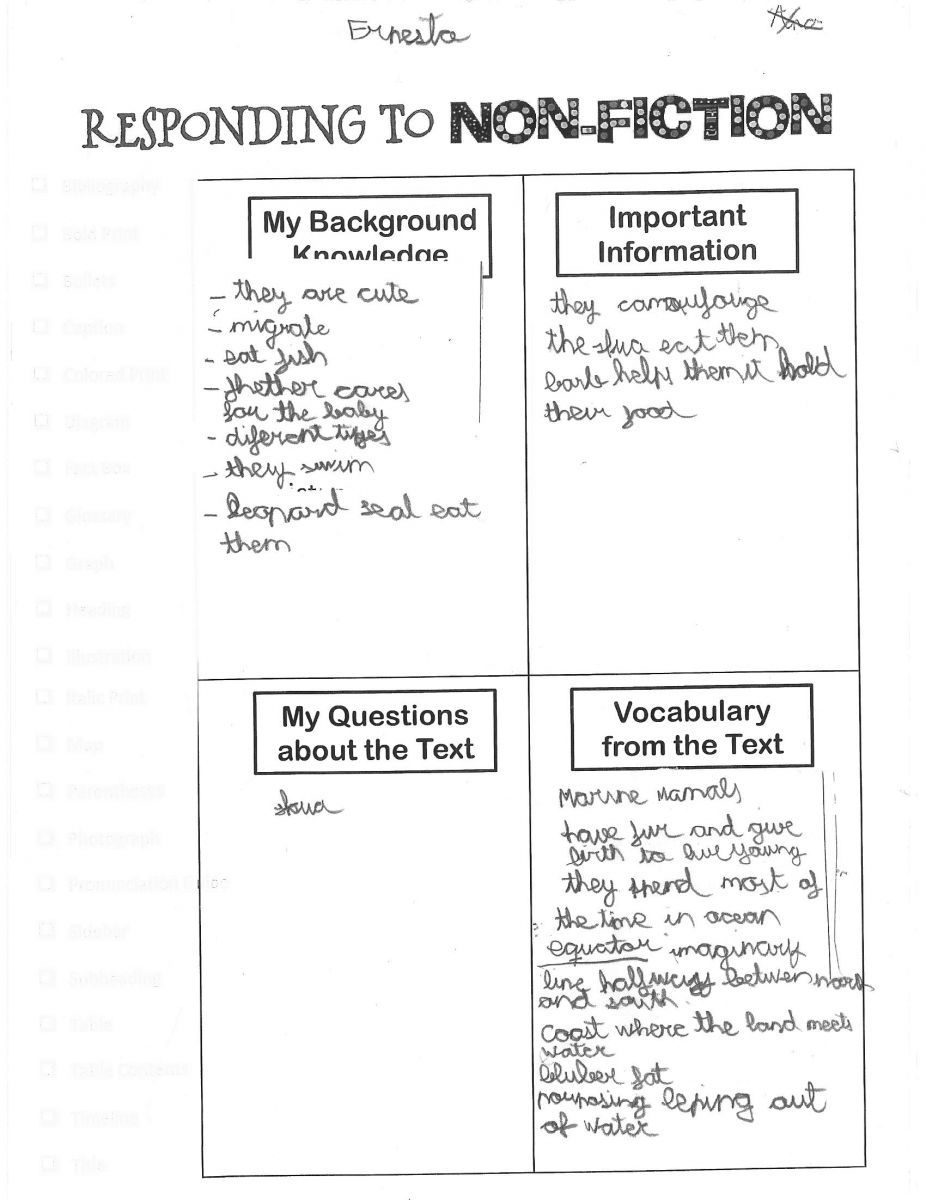 Ernesta
RESPONDING TO NON-FICTION
Bibliography
Bold Print
Bullets
Caption
Colored Print
Diagram
Fact Box
Glossary
Graph
Heading
Illustration
Italic Print
Map
Parentheses
Photograph
Pronunciation Guide
Sidebar
Subheading
Table
Table Contents
Timeline
Title
My Background
Knowledge
- they are cute
- migrate
- eat fish
- fhether cares
for the baby
- diferent types
- they swim
- leopard seal eat
them
Important
Information
they camouflouge
the skua eat them
barb helps them it hold
their food
My Questions
about the Text
skua
Vocabulary
from the Text
Marine Mamals
have fur and give
birth to live young
they spend most of
the time in ocean
equator imaginary
line halfway between north
and south
coast where the land meets
water
bluber fat
porposing leping out
of water